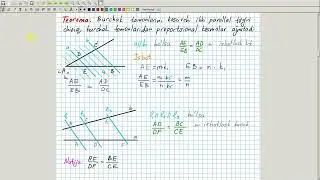 Teorema. Burchak tomonlarini kesuvchi ikki parallel to'g'ri
chiziq burchak tomonlaridan proporsional kesmalar ajratadi.
bo'lsa AE/EB = AD/DC ni isbotlash k-k
Isbot:
AE = mk, EB = n·k,
AE/EB = AD/DC
AE/EB = m·k/n·k = m/n
bo'lsa
AD/DF = BC/CE ni isbotlash kerak
Natija: BE/DF = BE/CE